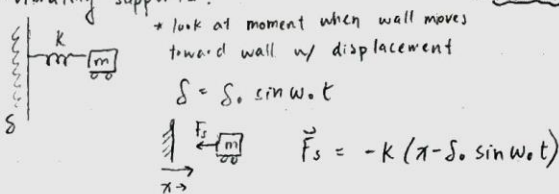 vibrating support:
K
m
* look at moment when wall moves
toward wall w/ displacement
δ = δ₀ sin ω₀ t
δ
Fs
m
F⃗s = -K (x - δ₀ sin ω₀ t)
x →